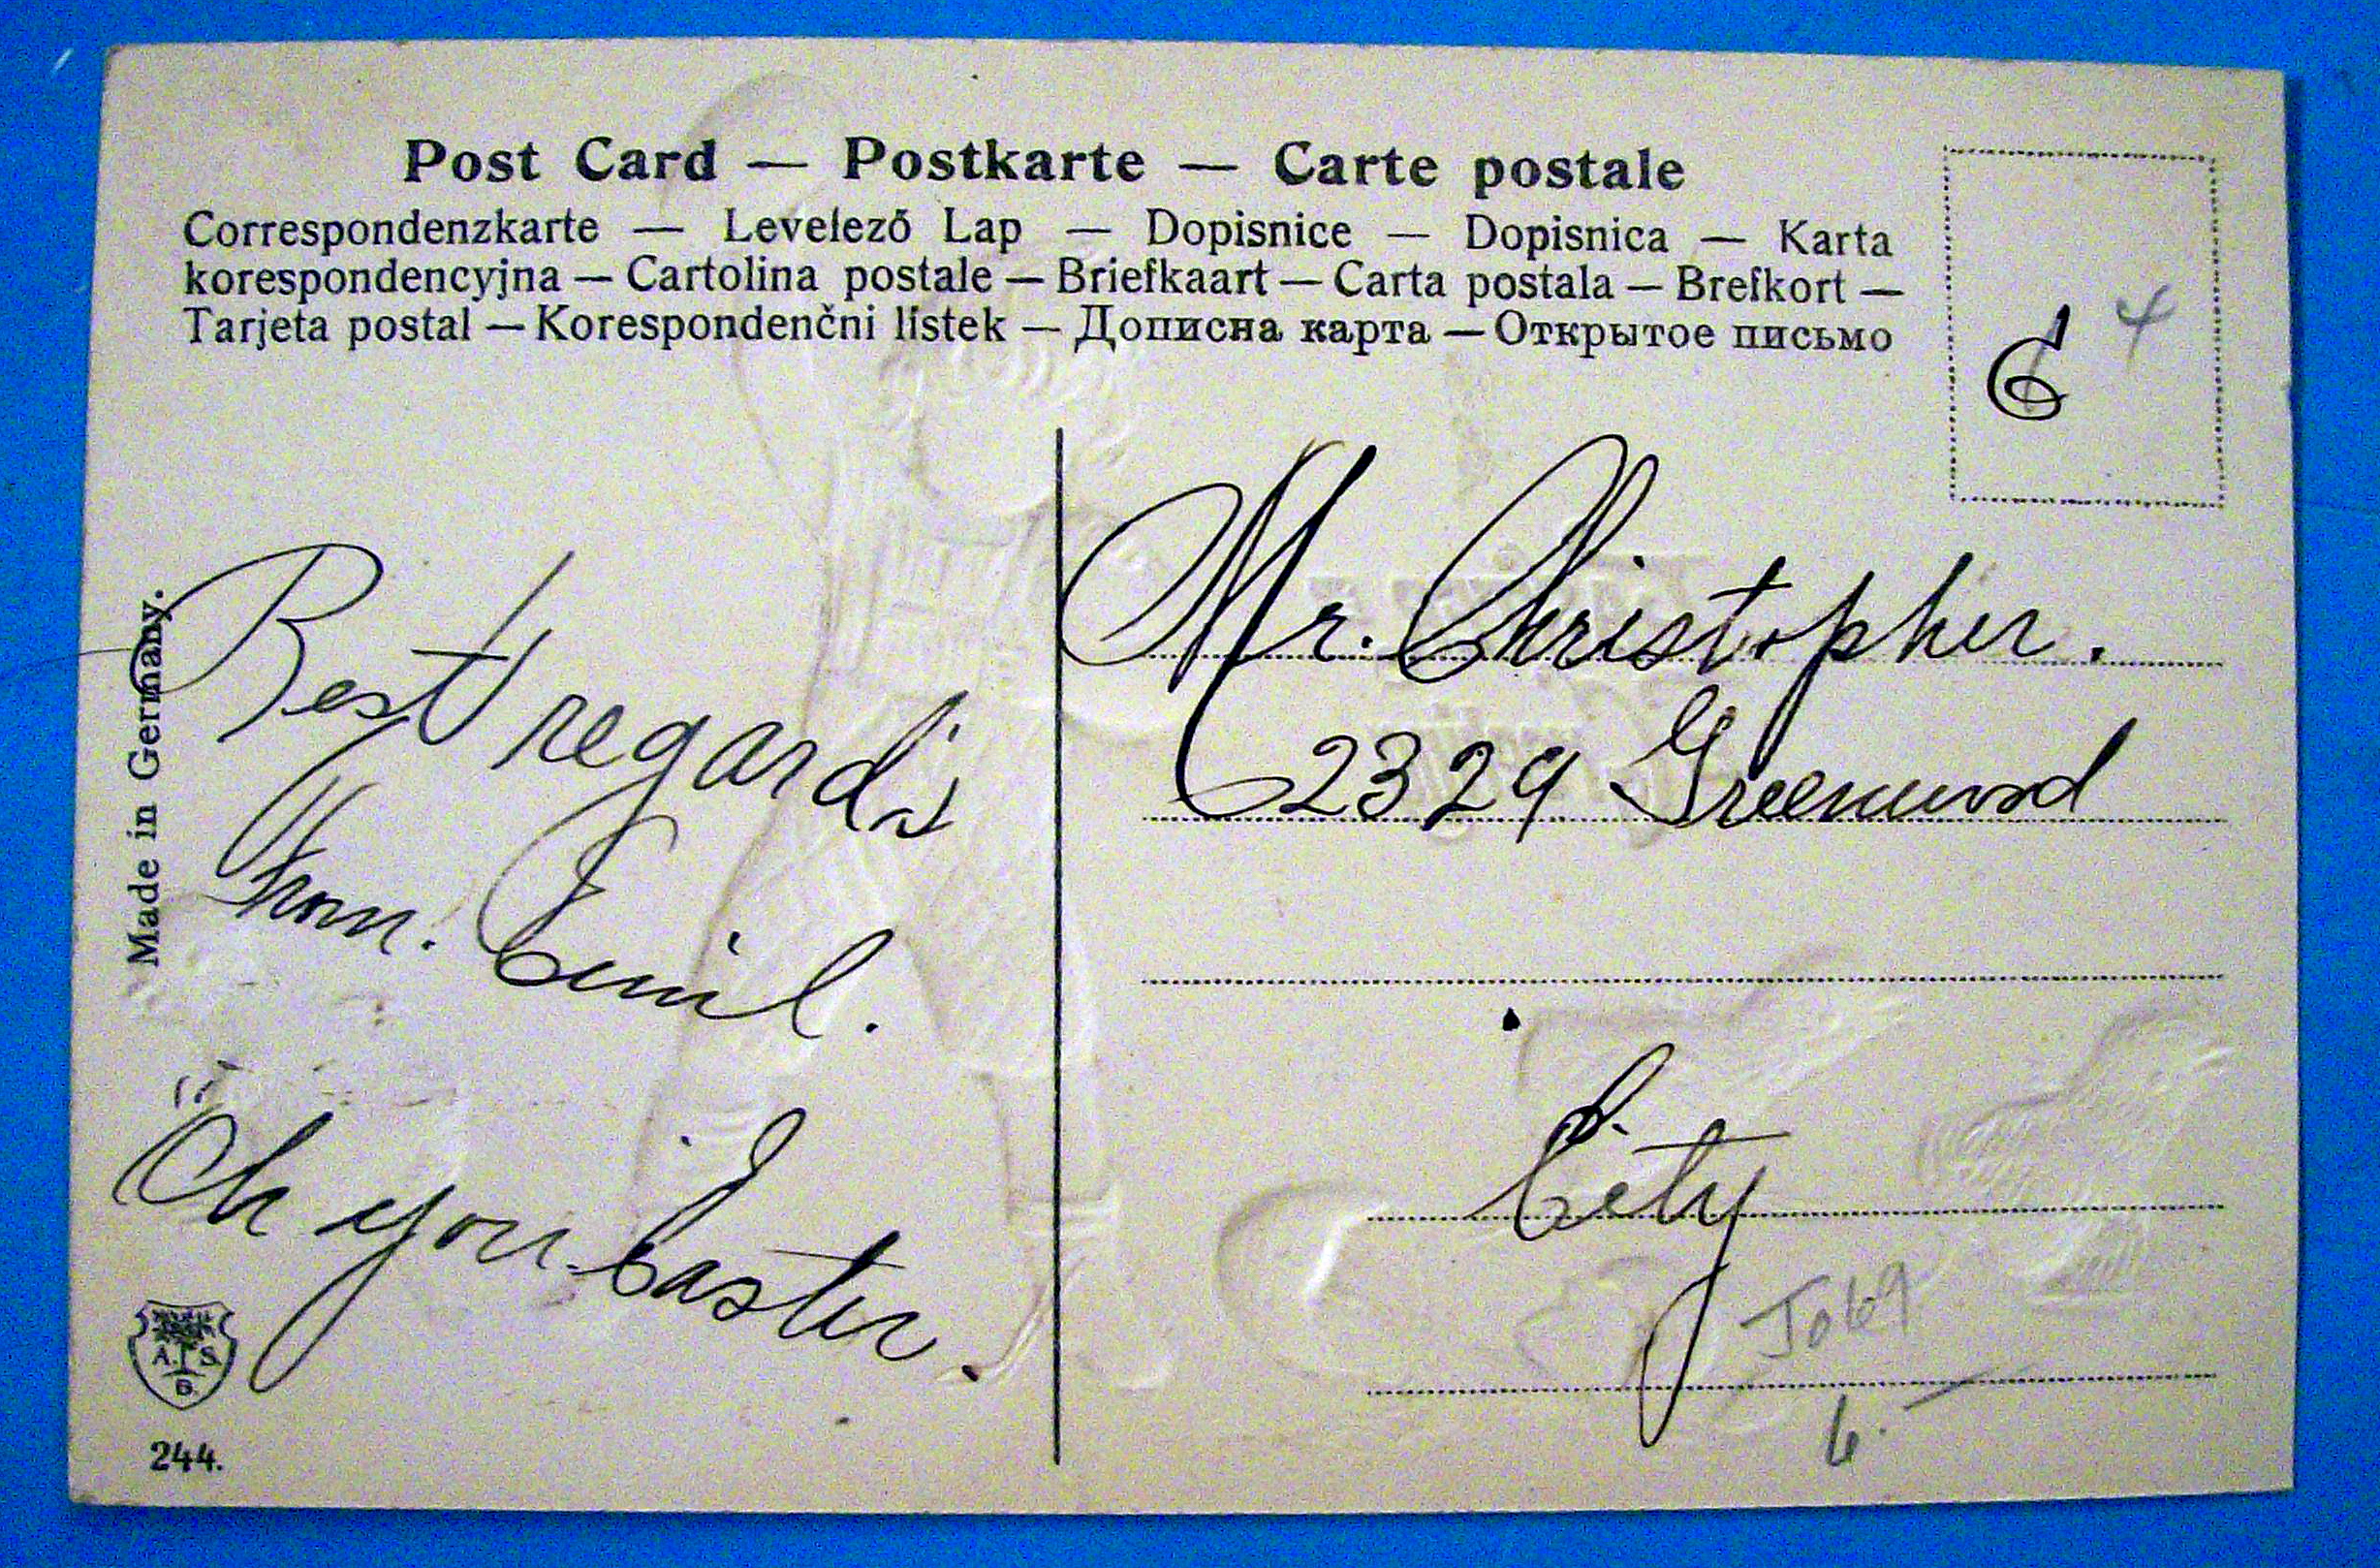 Post Card — Postkarte — Carte postale
Correspondenzkarte — Levelező Lap — Dopisnice — Dopisnica — Karta
korespondencyjna — Cartolina postale — Briefkaart — Carta postala — Brefkort —
Tarjeta postal — Korespondenčni lístek — Дописна карта — Открытое письмо
6 4
Made in Germany.
Best regards
from. Emil.
Oh you Easter.
Mr. Christopher.
2329 Greenwood
City
J069
6. —
A. S.
B.
244.